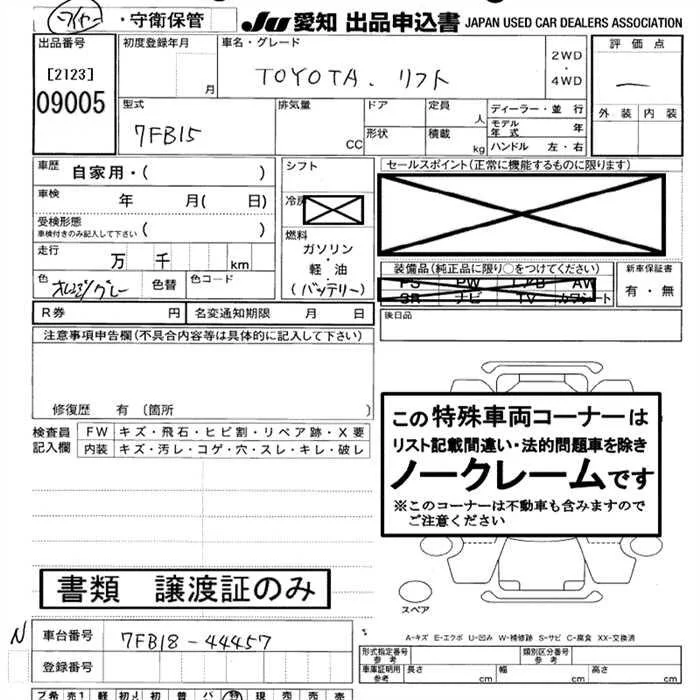 ・守衛保管
JU 愛知 出品申込書 JAPAN USED CAR DEALERS ASSOCIATION
出品番号
[2123]
09005
初度登録年月
月
車名・グレード
TOYOTA. リフト
2WD
・
4WD
評価点
一
外装 内装
型式
7FB15
排気量
CC
ドア
形状
定員
人
積載
kg
ディーラー・並行
モデル年式
年
ハンドル 左・右
車歴
自家用・( )
車検
年 月( 日)
受検形態
車検付きのみ記入して下さい
( )
走行
万 千 km
色
オレンジ/グレー
色替
色コード
シフト
冷房
燃料
ガソリン
・
軽・油
(バッテリー)
セールスポイント(正常に機能するものに限ります)
装備品(純正品に限り○をつけてください)
PS PW エアB AW
SR ナビ TV カワシート
新車保証書
有・無
後日品
R券
円
名変通知期限 月 日
注意事項申告欄(不具合内容等は具体的に記入して下さい)
修復歴 有 (箇所 )
検査員
記入欄
FW キズ・飛石・ヒビ割・リペア跡・X要
内装 キズ・汚レ・コゲ・穴・スレ・キレ・破レ
この特殊車両コーナーは
リスト記載間違い・法的問題車を除き
ノークレームです
※このコーナーは不動車も含みますので
ご注意ください
書類 譲渡証のみ
スペア
N
車台番号
7FB18-44457
登録番号
A-キズ E-エクボ U-凹み W-補修跡 S-サビ C-腐食 XX-交換済
形式指定番号
参考
類別区分番号
参考
車庫証明用
参考
長さ cm
幅 cm
高さ cm